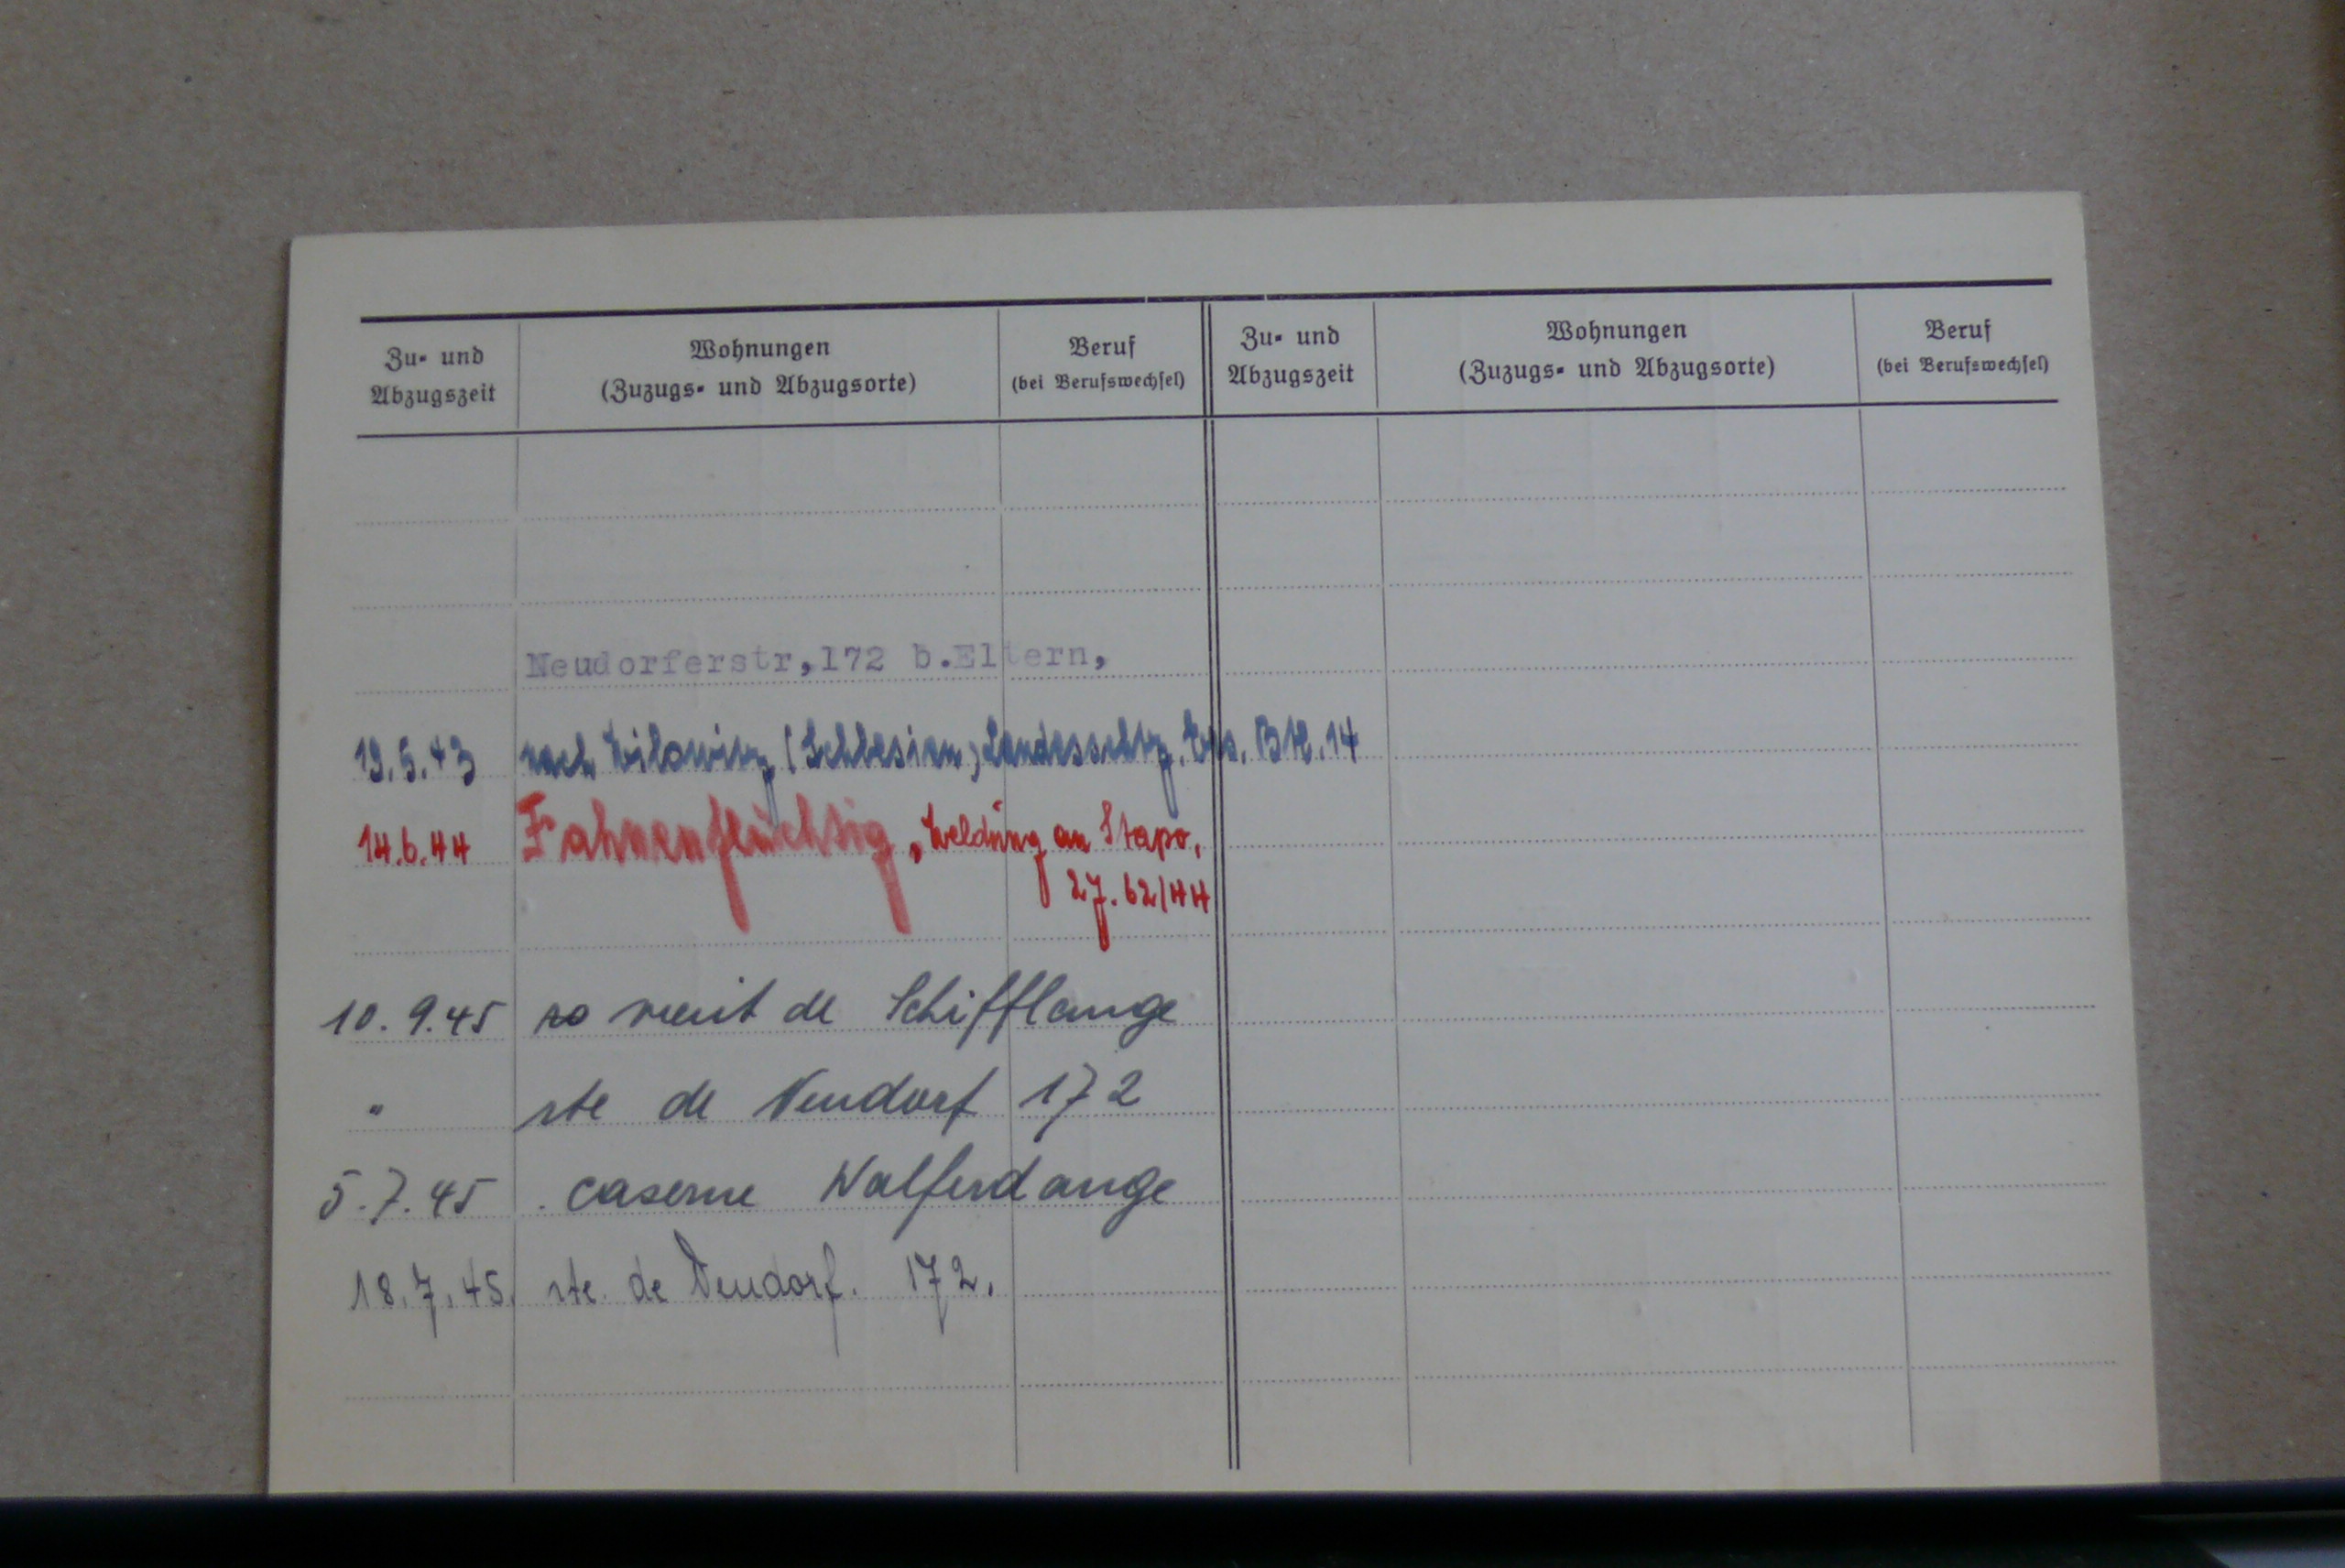 Zu- und Abzugszeit
Wohnungen
(Zuzugs- und Abzugsorte)
Beruf
(bei Berufswechsel)
Zu- und Abzugszeit
Wohnungen
(Zuzugs- und Abzugsorte)
Beruf
(bei Berufswechsel)
Neudorferstr,172 b.Eltern,
19.5.43 nach (Schlesien) Landesschtz. Ers. Btl. 14
14.6.44 Fahnenflüchtig, Meldung an Stapo,
27.62/44
10.9.45 vient de Schifflange
" rte de Neudorf 172
5.7.45 . caserne Walferdange
18.7.45. rte. de Neudorf. 172.